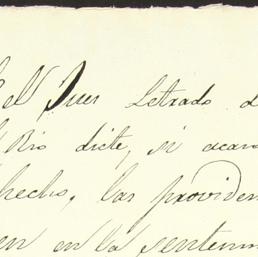 el Juez Letrado d
Rio dicte, si acas
hecho, las providen
en en la senten